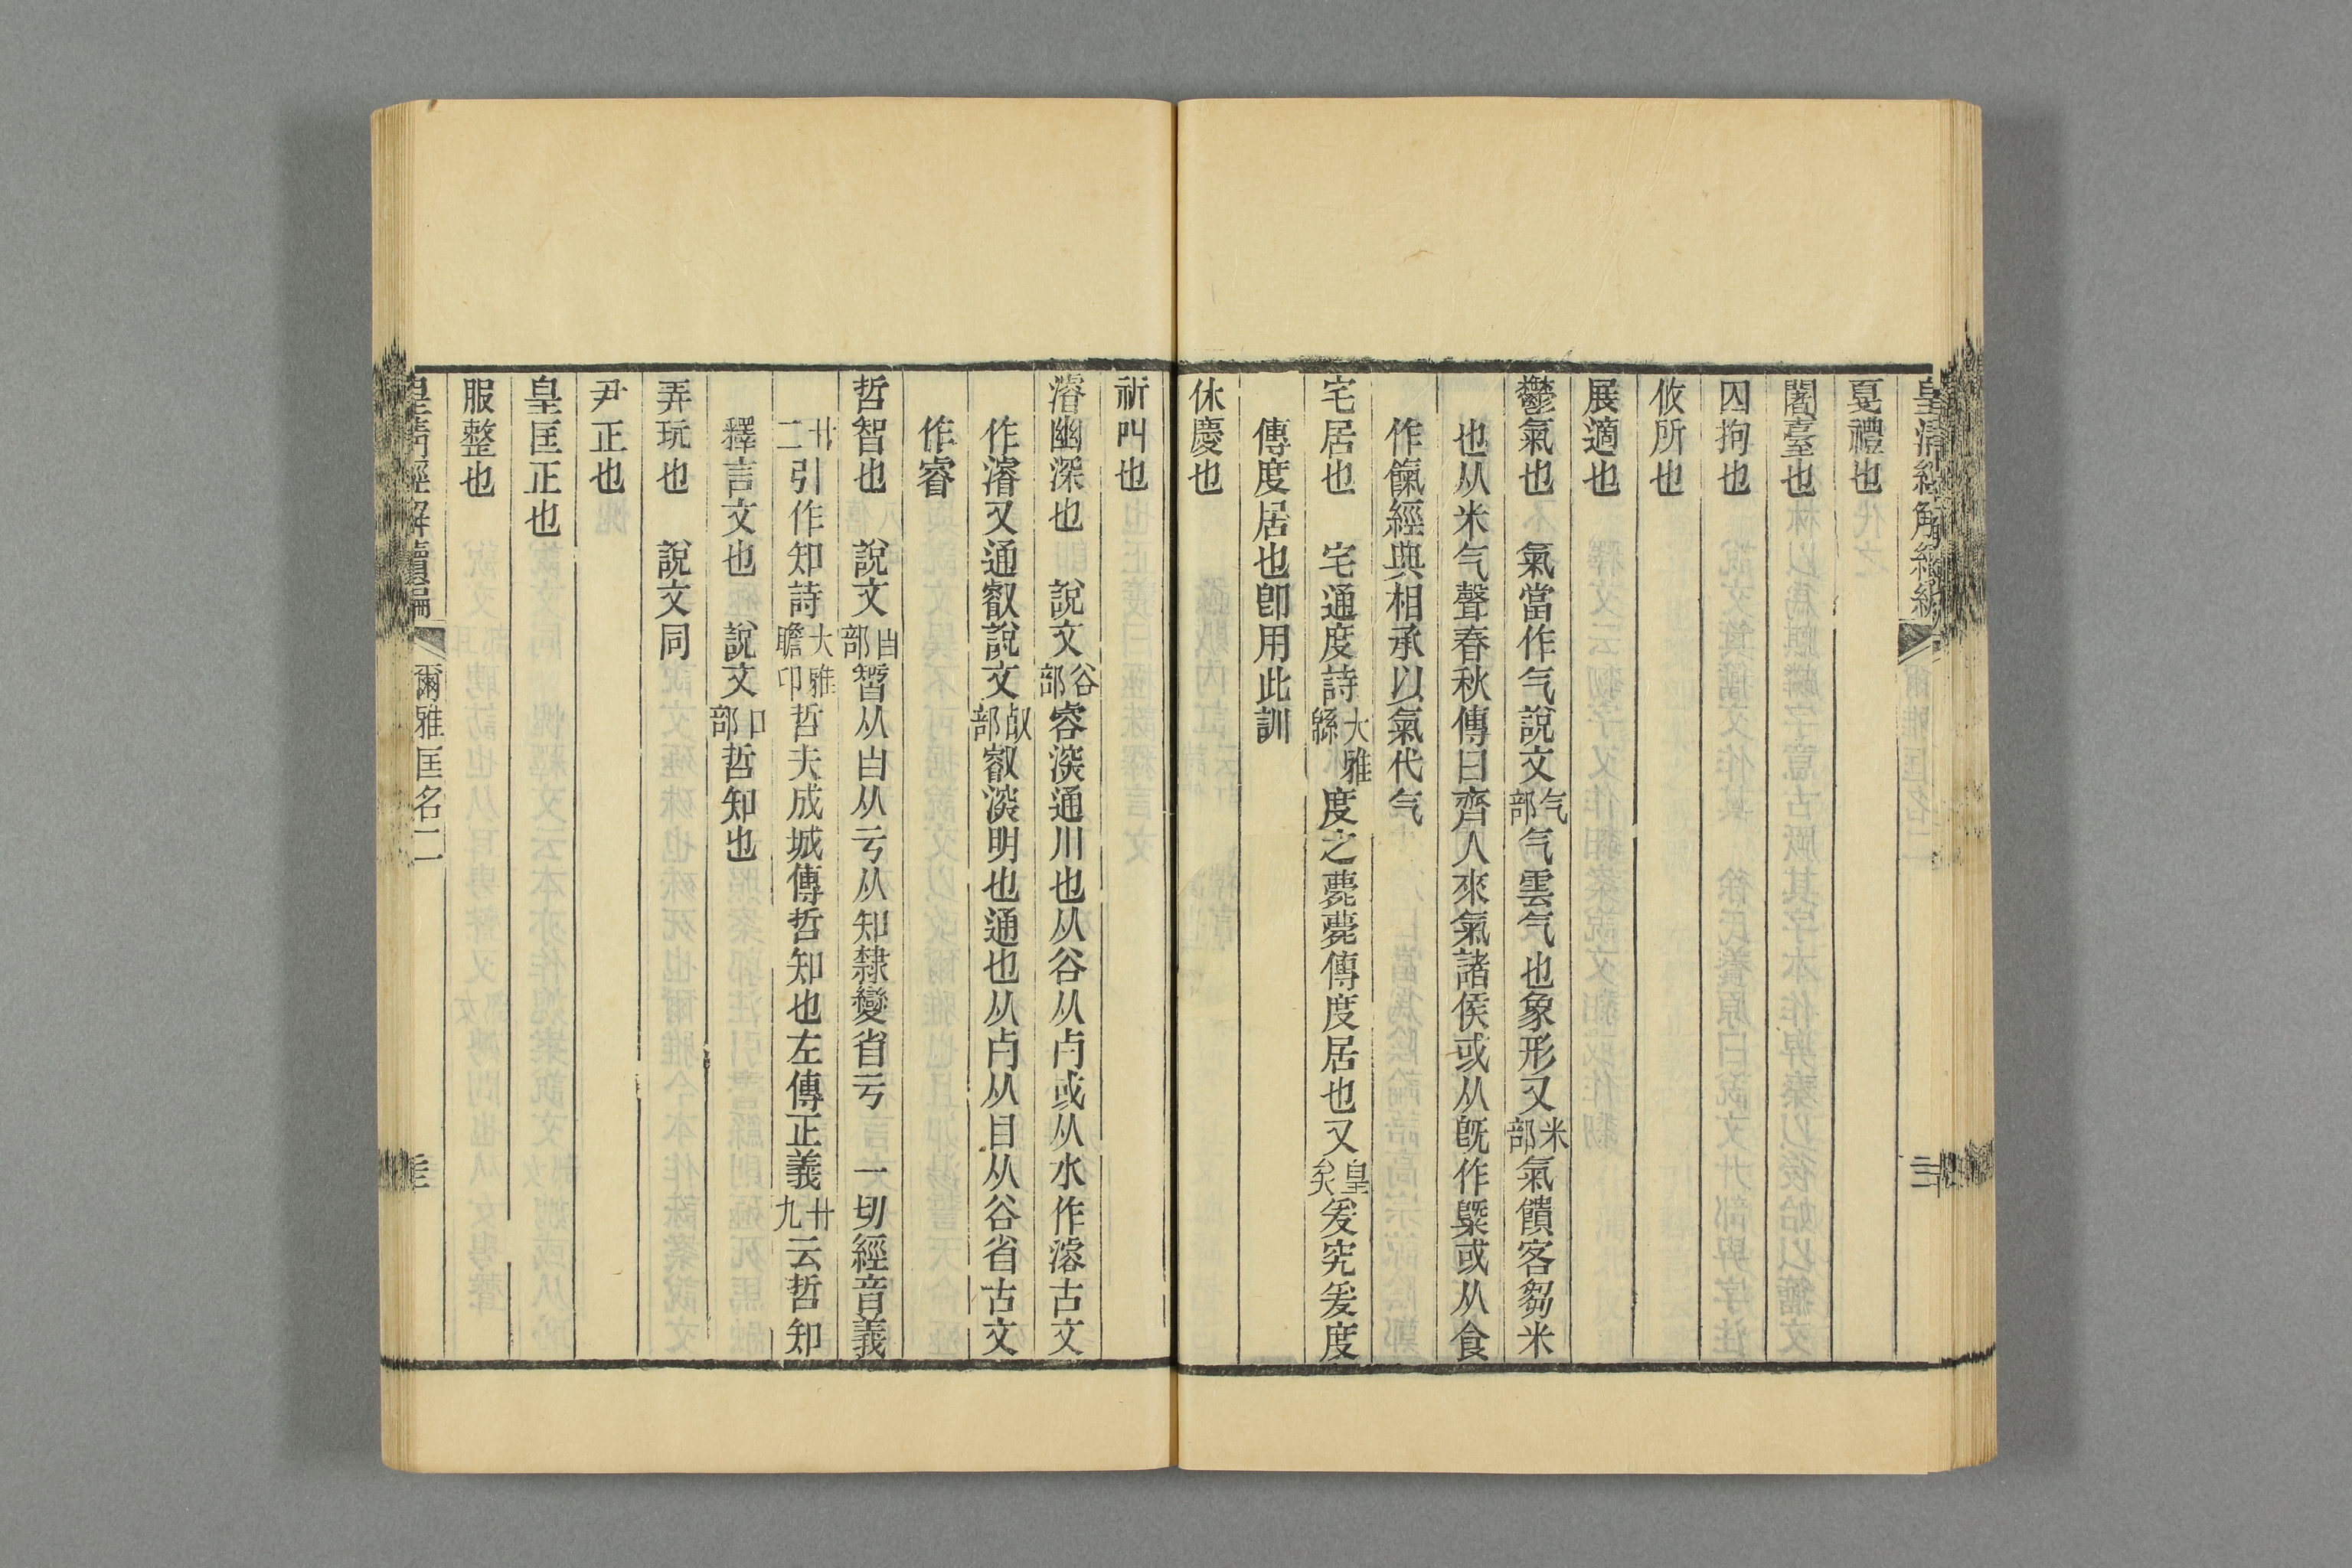 皇清經解續編
戛禮也
闍臺也
囚拘也
攸所也
展適也
鬱氣也 氣當作气說文气部气雲气也象形又米部氣饋客芻米
也从米气聲春秋傳曰齊人來氣諸侯或从旣作䊠或从食
作餼經典相承以氣代气
宅居也 宅通度詩大雅緜度之薨薨傳度居也又皇矣爰究爰度
傳度居也卽用此訓
休慶也
祈叫也
濬幽深也 說文谷部㕡深通川也从谷从卢或从水作濬古文
作濬又通叡說文㕡部叡深明也通也从卢从目从谷省古文
作睿
哲智也 說文白部㿟从白从亏从知隸變省亏 一切經音義
卄二引作知詩大雅瞻卬哲夫成城傳哲知也左傳正義卄九云哲知
釋言文也 說文口部哲知也
弄玩也 說文同
尹正也
皇匡正也
服整也
皇清經解續編 爾雅匡名二